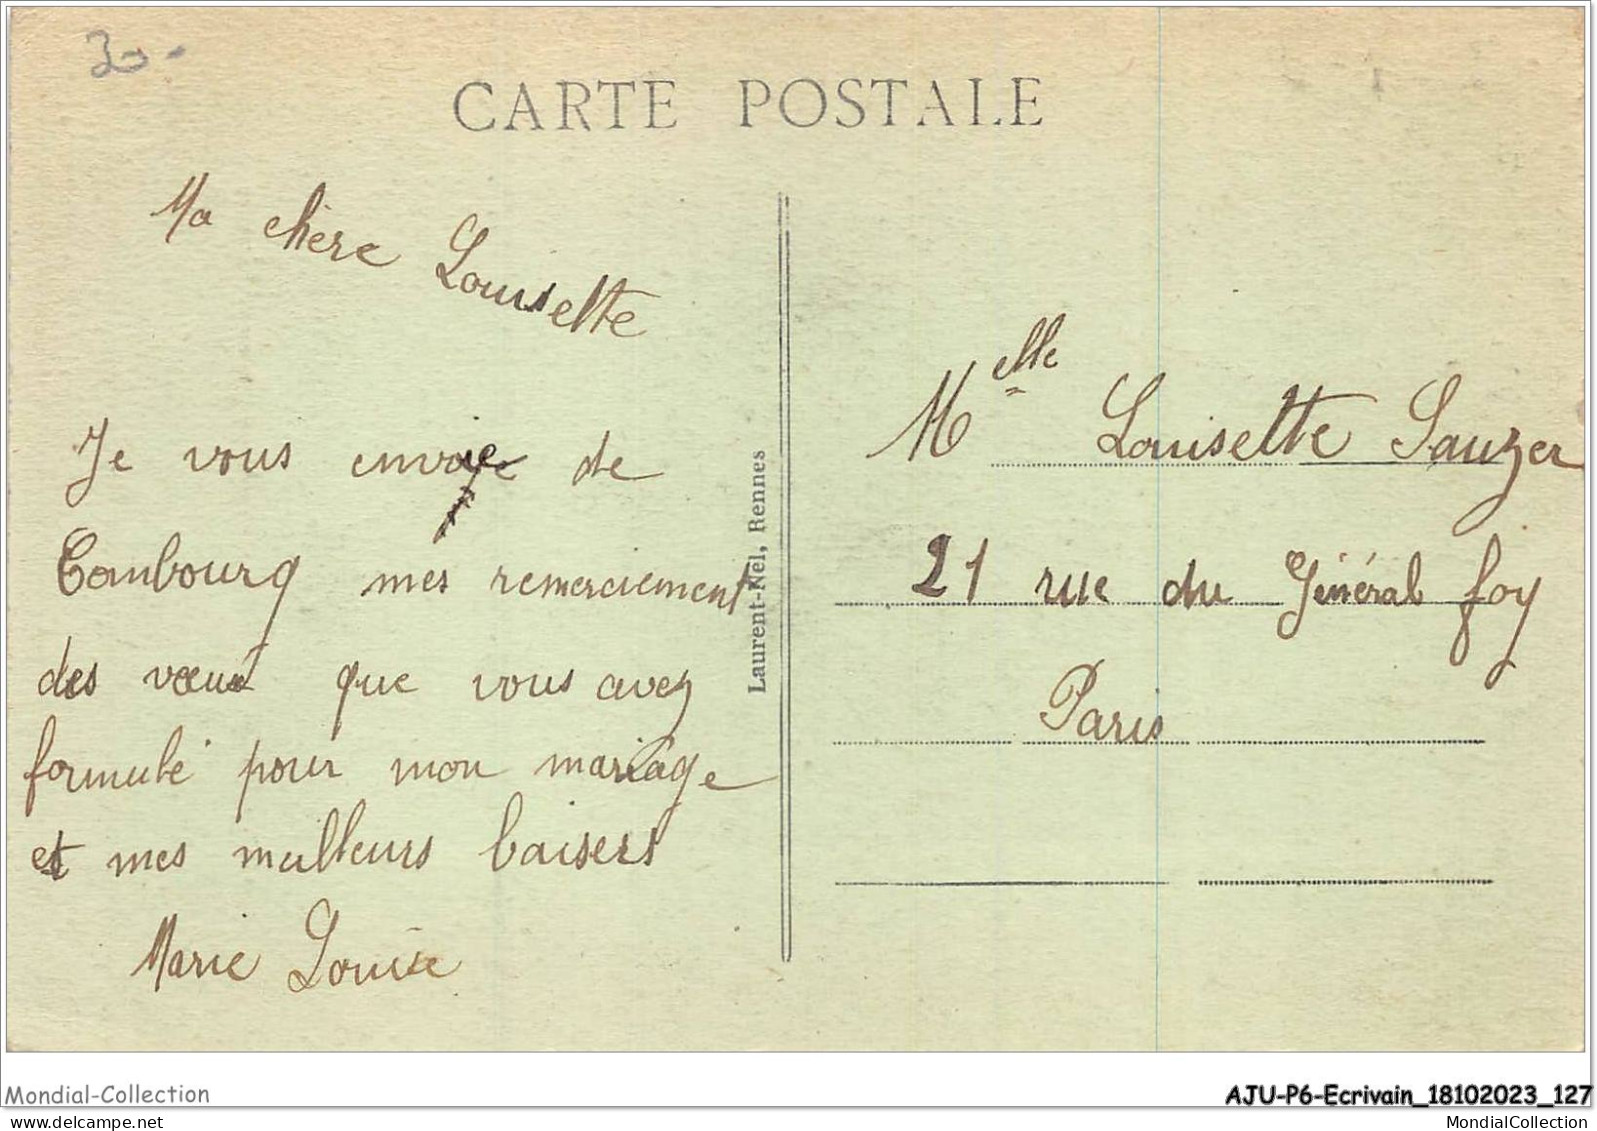 30-
CARTE POSTALE
Ma chère Louisette
Je vous envoie de
Combourg mes remerciement
des vœux que vous avez
formulé pour mon mariage
et mes meilleurs baisers
Marie Louise
Laurent-Nel, Rennes
Melle Louisette Sauzer
21 rue du Général foy
Paris
Mondial-Collection
AJU-P6-Ecrivain_18102023_127
www.delcampe.net
MondialCollection